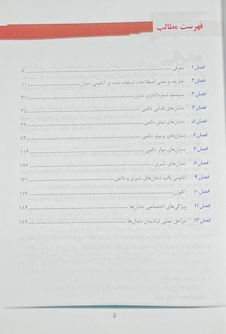 فهرست مطالب
فصل ۱ معرفی ۷
فصل ۲ تعاریف و معنی اصطلاحات استفاده شده در آناتومی دندان ۱۱
فصل ۳ سیستم شماره‌گذاری دندان ۳۱
فصل ۴ دندان‌های ثنایای دائمی
فصل ۵ دندان‌های نیش دائمی
فصل ۶ دندان‌های پرمولر دائمی
فصل ۷ دندان‌های مولر دائمی ۱۱۳
فصل ۸ دندان‌های شیری
فصل ۹ آناتومی پالپ دندان‌های شیری و دائمی
فصل ۱۰ اکلوژن ۱۷۳
فصل ۱۱ ویژگی‌های اختصاصی دندان‌ها ۱۸۳
فصل ۱۲ مراحل عملی تراشیدن دندان‌ها ۱۸۹
۵